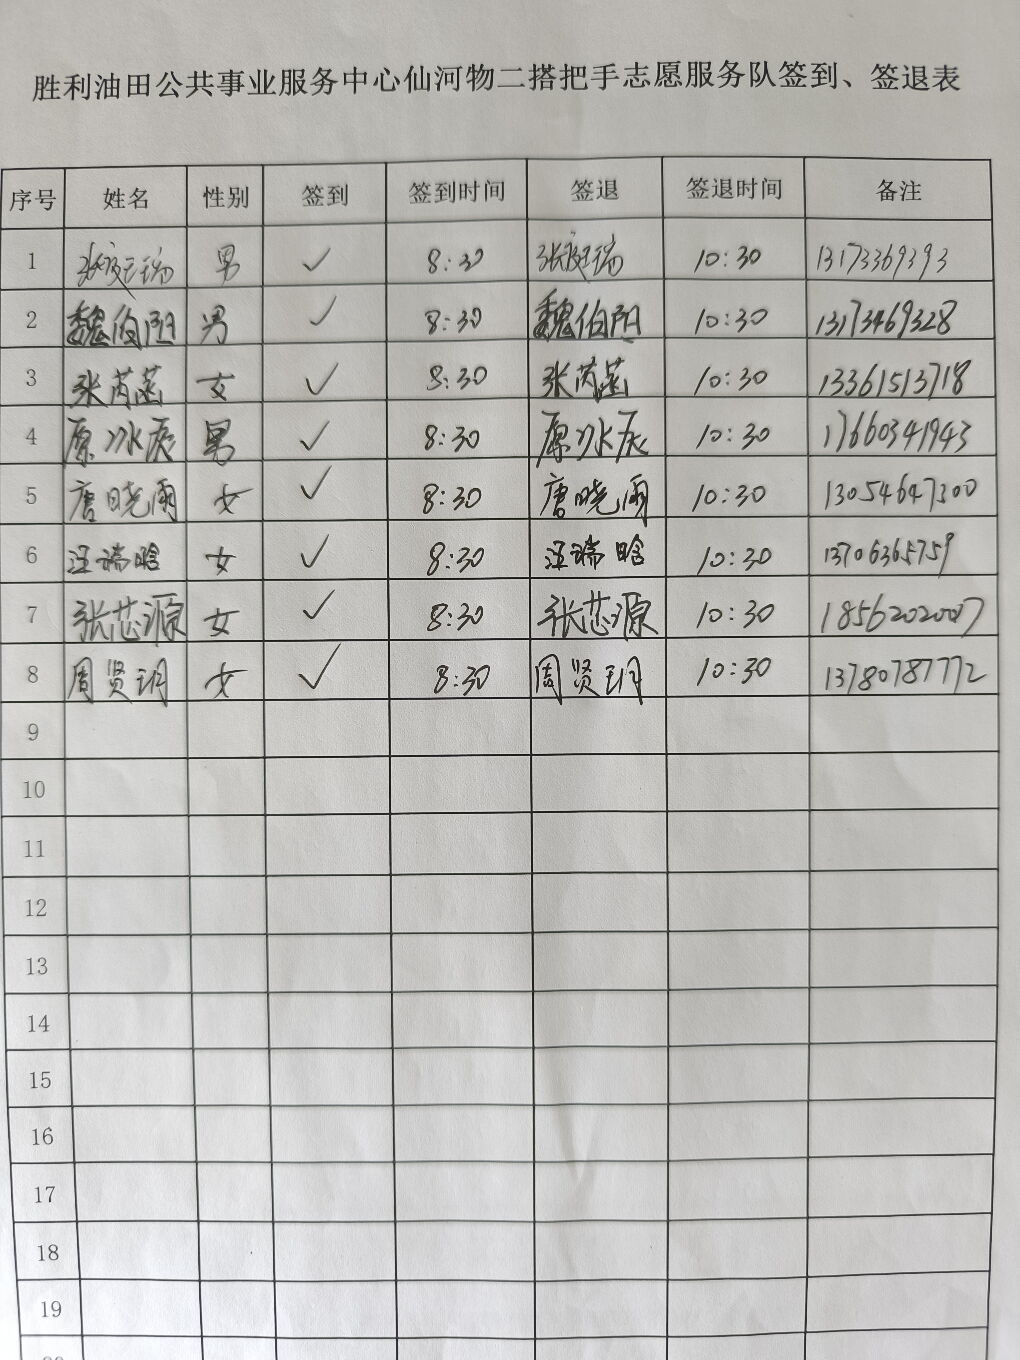 胜利油田公共事业服务中心仙河物二搭把手志愿服务队签到、签退表
序号 姓名 性别 签到 签到时间 签退 签退时间 备注
1 男 ✓ 8:30 10:30 13173369393
2 魏伯阳 男 ✓ 8:30 魏伯阳 10:30 13173469328
3 张芮菡 女 ✓ 8:30 张芮菡 10:30 13361513718
4 原冰辰 男 ✓ 8:30 原冰辰 10:30 17660341943
5 唐晓雨 女 ✓ 8:30 唐晓雨 10:30 13054647300
6 汪瑞晗 女 ✓ 8:30 汪瑞晗 10:30 13706365759
7 张芯源 女 ✓ 8:30 张芯源 10:30 18562020007
8 周贤玥 女 ✓ 8:30 周贤玥 10:30 13780787772
9
10
11
12
13
14
15
16
17
18
19